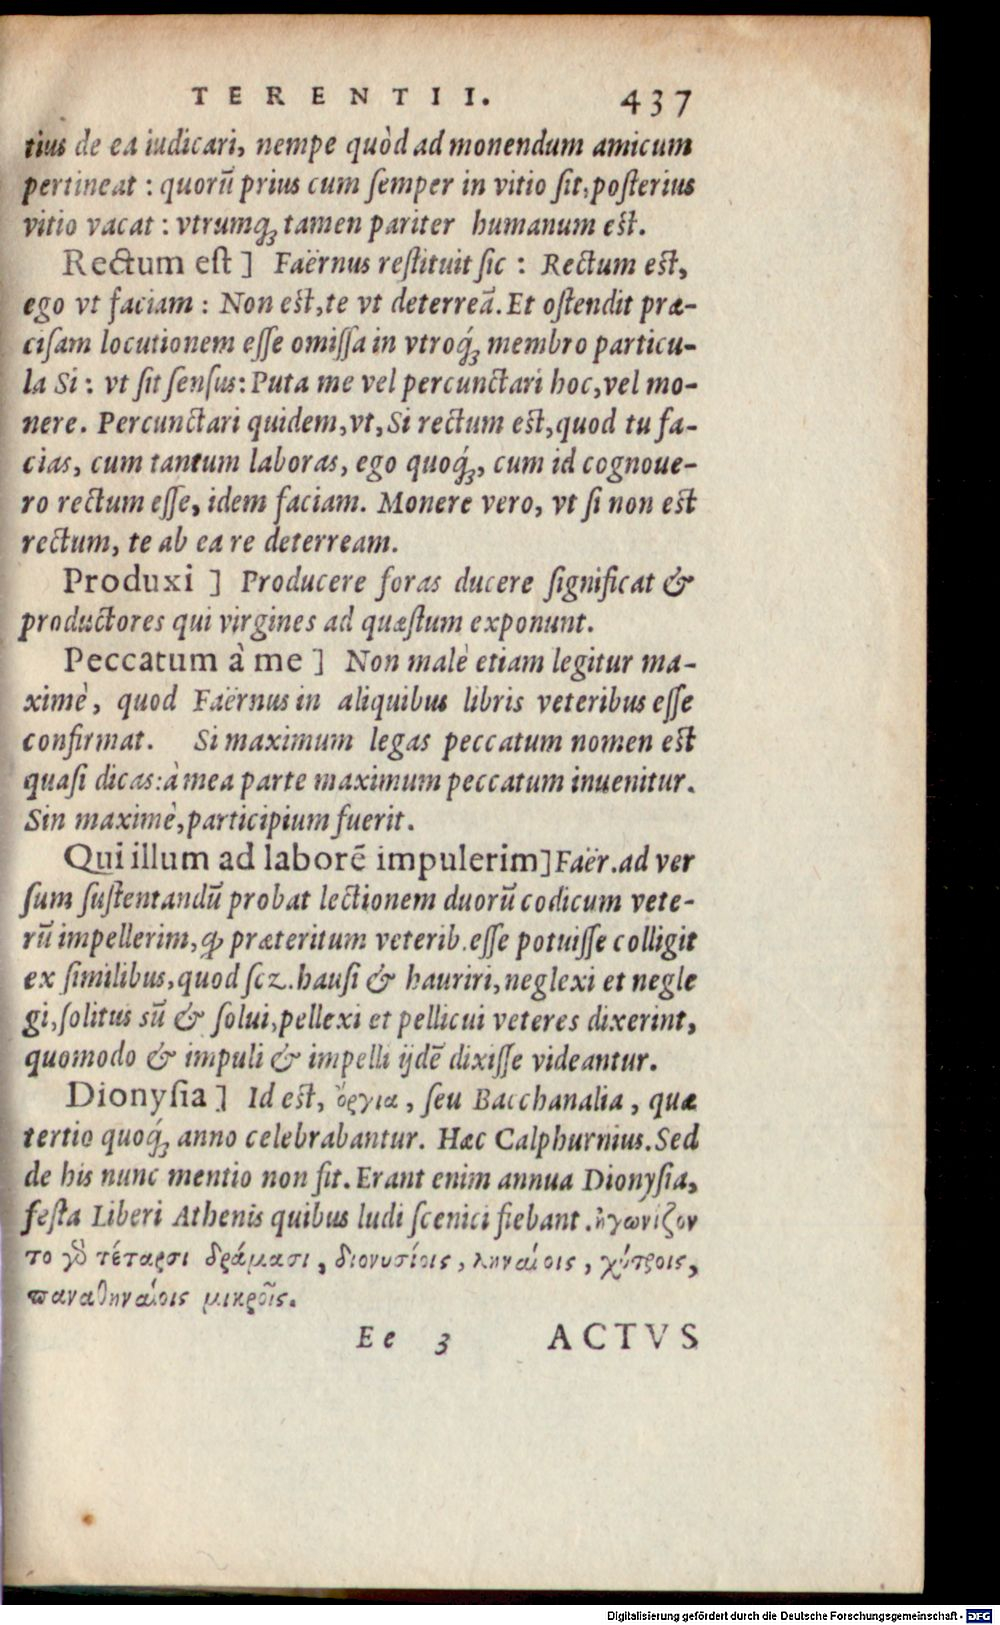 TERENTII. 437
tius de ea iudicari, nempe quòd ad monendum amicum
pertineat : quorũ prius cum ſemper in vitio ſit, poſterius
vitio vacat : vtrumq; tamen pariter humanum eſt.
Rectum eſt ] Faërnus reſtituit ſic : Rectum eſt,
ego vt faciam : Non eſt, te vt deterreã. Et oſtendit præ-
ciſam locutionem eſſe omiſſa in vtroq́; membro particu-
la Si : vt ſit ſenſus: Puta me vel percunctari hoc, vel mo-
nere. Percunctari quidem, vt, Si rectum eſt, quod tu fa-
cias, cum tantum laboras, ego quoq́;, cum id cognoue-
ro rectum eſſe, idem faciam. Monere vero, vt ſi non eſt
rectum, te ab ea re deterream.
Produxi ] Producere foras ducere ſignificat &
productores qui virgines ad quæſtum exponunt.
Peccatum à me ] Non malè etiam legitur ma-
ximè, quod Faërnus in aliquibus libris veteribus eſſe
confirmat. Si maximum legas peccatum nomen eſt
quaſi dicas: à mea parte maximum peccatum inuenitur.
Sin maximè, participium fuerit.
Qui illum ad laborẽ impulerim] Faër. ad ver
ſum ſuſtentandũ probat lectionem duorũ codicum vete-
rũ impellerim, ꝙ præteritum veterib. eſſe potuiſſe colligit
ex ſimilibus, quod ſcz. hauſi & hauriri, neglexi et negle
gi, ſolitus sũ & ſolui, pellexi et pellicui veteres dixerint,
quomodo & impuli & impelli ijdẽ dixiſſe videantur.
Dionyſia ] Id eſt, ὄργια, ſeu Bacchanalia, quæ
tertio quoq́; anno celebrabantur. Hæc Calphurnius. Sed
de his nunc mentio non fit. Erant enim annua Dionyſia,
feſta Liberi Athenis quibus ludi ſcenici fiebant. ἠγωνίζον
το γὸ τέταρσι δράμασι, διονυσίοις, ληναίοις, χύτροις,
παναθηναίοις μικροῖς.
Ee 3 ACTVS
Digitalisierung gefördert durch die Deutsche Forschungsgemeinschaft - DFG